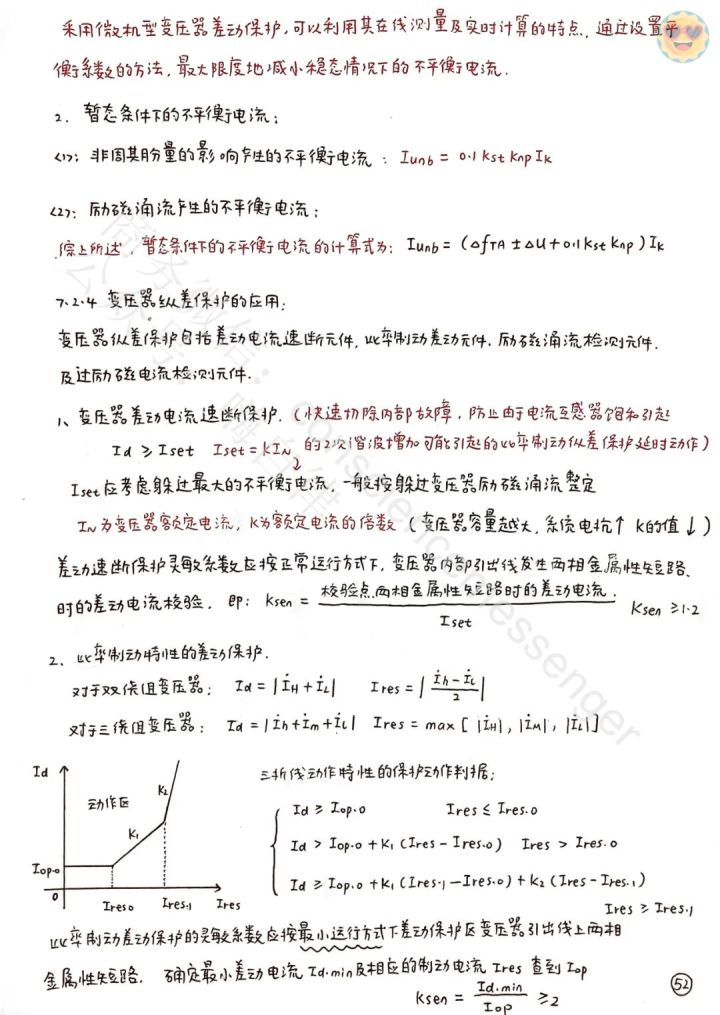 采用微机型变压器差动保护,可以利用其在线测量及实时计算的特点,通过设置平
衡系数的方法,最大限度地减小稳态情况下的不平衡电流.
2. 暂态条件下的不平衡电流:
<1>: 非周期分量的影响产生的不平衡电流: Iunb = 0.1 Kst Knp Ik
<2>: 励磁涌流产生的不平衡电流:
综上所述,暂态条件下的不平衡电流的计算式为: Iunb = (ΔfTA ± ΔU + 0.1 Kst Knp) Ik
7.2.4 变压器纵差保护的应用:
变压器纵差保护包括差动电流速断元件,比率制动差动元件.励磁涌流检测元件.
及过励磁电流检测元件.
1、变压器差动电流速断保护.(快速切除内部故障,防止由于电流互感器饱和引起
Id ≥ Iset Iset = KIN 的2次谐波增加可能引起的比率制动纵差保护延时动作)
Iset应考虑躲过最大的不平衡电流,一般按躲过变压器励磁涌流整定
IN为变压器额定电流,K为额定电流的倍数(变压器容量越大,系统电抗↑ K的值↓)
差动速断保护灵敏系数应按正常运行方式下,变压器内部引出线发生两相金属性短路
时的差动电流校验. 即: Ksen = 校验点两相金属性短路时的差动电流 / Iset Ksen ≥1.2
2、比率制动特性的差动保护.
对于双绕组变压器: Id = |İH + İL| Ires = |İh - İL / 2|
对于三绕组变压器: Id = |İh + İm + İL| Ires = max [ |İH|, |İM|, |İL| ]
Id
动作区
K1
K2
Iop.0
0
Ires0
Ires.1
Ires
三折线动作特性的保护动作判据:
Id ≥ Iop.0 Ires ≤ Ires.0
Id > Iop.0 + K1 (Ires - Ires.0) Ires > Ires.0
Id ≥ Iop.0 + K1 (Ires.1 - Ires.0) + K2 (Ires - Ires.1)
Ires ≥ Ires.1
比率制动差动保护的灵敏系数应按最小运行方式下差动保护区变压器引出线上两相
金属性短路. 确定最小差动电流Id.min及相应的制动电流Ires 查到Iop
Ksen = Id.min / Iop ≥2
52
consciencemessenger